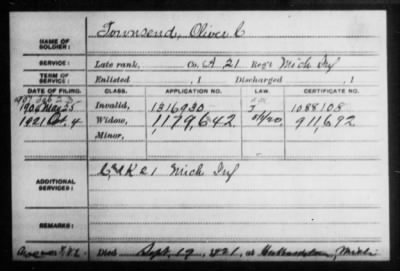 NAME OF SOLDIER: Townsend, Oliver C
SERVICE: Late rank, Co. A 21 Reg't Mich Inf
TERM OF SERVICE: Enlisted , 1 Discharged , 1
DATE OF FILING. CLASS. APPLICATION NO. LAW. CERTIFICATE NO.
1906 May 25 Invalid, 1316930 1088108
1921 Oct. 4 Widow, 1,179,642 911,692
Minor,
ADDITIONAL SERVICES: K 21 Mich Inf
REMARKS:
Died Sept. 19, 1921, at Mich